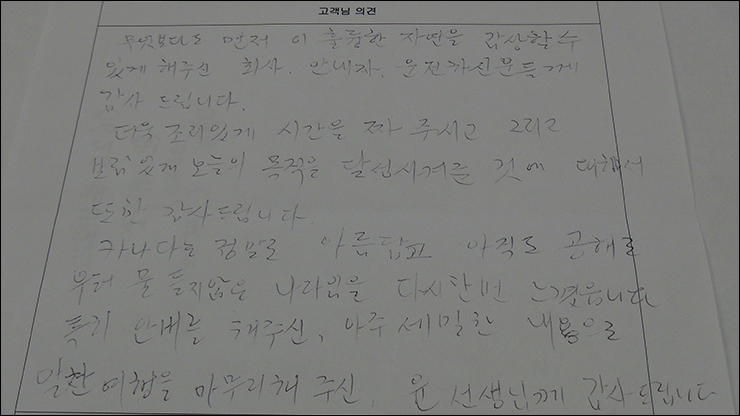 고객님 의견
무엇보다도 먼저 이 훌륭한 자연을 감상할수
있게 해주신 회사. 안내자. 운전하신분들께
감사 드립니다.
더욱 조리있게 시간을 짜 주시고 그리고
보람있게 오늘의 목적을 달성시켜준 것에 대해서
또한 감사드립니다.
카나다는 정말로 아름답고 아직도 공해로
부터 물 들지않은 나라임을 다시한번 느꼈읍니다
특히 안내를 해주신, 아주 세밀한 내용으로
알찬 여행을 마무리해 주신. 윤 선생님께 감사드립니다